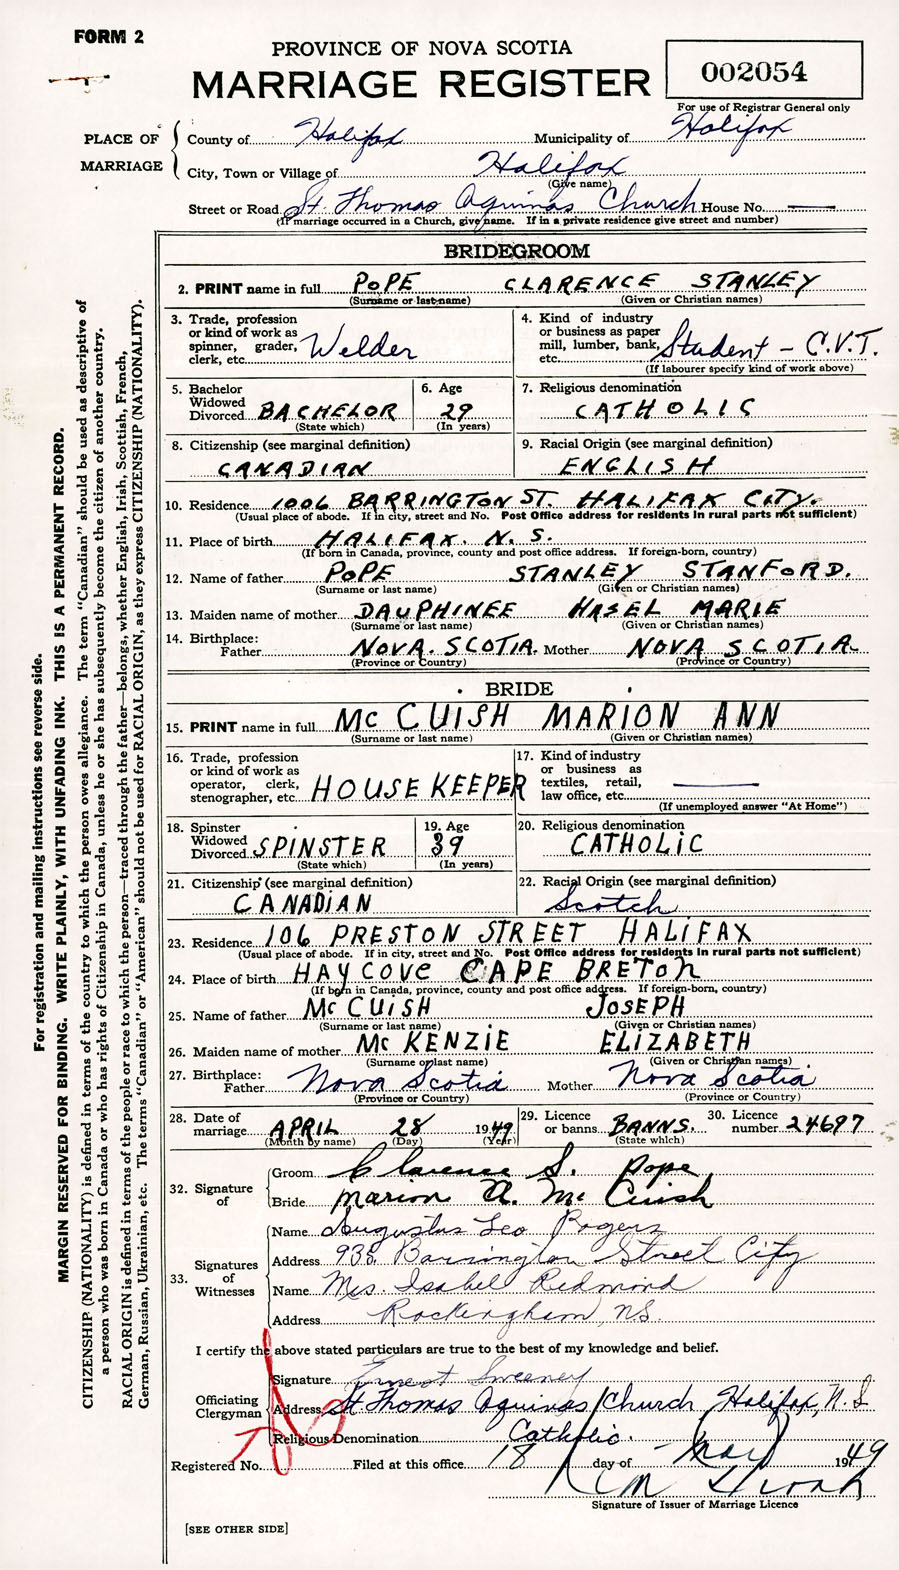 FORM 2
PROVINCE OF NOVA SCOTIA
MARRIAGE REGISTER
002054
For use of Registrar General only
PLACE OF MARRIAGE
County of Halifax Municipality of Halifax
City, Town or Village of Halifax
(Give name)
Street or Road St. Thomas Aquinas Church House No. —
(If marriage occurred in a Church, give name. If in a private residence give street and number)
BRIDEGROOM
2. PRINT name in full POPE CLARENCE STANLEY
(Surname or last name) (Given or Christian names)
3. Trade, profession or kind of work as spinner, grader, clerk, etc. Welder
4. Kind of industry or business as paper mill, lumber, bank, etc. Student - C.V.T.
(If labourer specify kind of work above)
5. Bachelor Widowed Divorced BACHELOR
(State which)
6. Age 29
(In years)
7. Religious denomination
CATHOLIC
8. Citizenship (see marginal definition)
CANADIAN
9. Racial Origin (see marginal definition)
ENGLISH
10. Residence 1006 BARRINGTON ST. HALIFAX CITY.
(Usual place of abode. If in city, street and No. Post Office address for residents in rural parts not sufficient)
11. Place of birth HALIFAX. N. S.
(If born in Canada, province, county and post office address. If foreign-born, country)
12. Name of father POPE STANLEY STANFORD.
(Surname or last name) (Given or Christian names)
13. Maiden name of mother DAUPHINEE HASEL MARIE
(Surname or last name) (Given or Christian names)
14. Birthplace:
Father NOVA. SCOTIA. Mother NOVA SCOTIA
(Province or Country) (Province or Country)
BRIDE
15. PRINT name in full Mc CUISH MARION ANN
(Surname or last name) (Given or Christian names)
16. Trade, profession or kind of work as operator, clerk, stenographer, etc. HOUSE KEEPER
17. Kind of industry or business as textiles, retail, law office, etc. —
(If unemployed answer "At Home")
18. Spinster Widowed Divorced SPINSTER
(State which)
19. Age 39
(In years)
20. Religious denomination
CATHOLIC
21. Citizenship (see marginal definition)
CANADIAN
22. Racial Origin (see marginal definition)
Scotch
23. Residence 106 PRESTON STREET HALIFAX
(Usual place of abode. If in city, street and No. Post Office address for residents in rural parts not sufficient)
24. Place of birth HAY COVE CAPE BRETON
(If born in Canada, province, county and post office address. If foreign-born, country)
25. Name of father Mc CUISH JOSEPH
(Surname or last name) (Given or Christian names)
26. Maiden name of mother Mc KENZIE ELIZABETH
(Surname or last name) (Given or Christian names)
27. Birthplace:
Father Nova Scotia Mother Nova Scotia
(Province or Country) (Province or Country)
28. Date of marriage APRIL 28 1949
(Month by name) (Day) (Year)
29. Licence or banns BANNS.
(State which)
30. Licence number 24697
32. Signature of
Groom Clarence S. Pope
Bride Marion A. Mc Cuish
33. Signatures of Witnesses
Name Augustus Leo Rogers
Address 938 Barrington Street City
Name Mrs. Isabel Redmond
Address Rockingham, N.S.
I certify the above stated particulars are true to the best of my knowledge and belief.
Officiating Clergyman
Signature Ernest Sweeney
Address St Thomas Aquinas Church Halifax, N.S
Religious Denomination Catholic.
Registered No. Filed at this office 18 day of May 1949
Signature of Issuer of Marriage Licence
[SEE OTHER SIDE]
For registration and mailing instructions see reverse side.
MARGIN RESERVED FOR BINDING. WRITE PLAINLY, WITH UNFADING INK. THIS IS A PERMANENT RECORD.
CITIZENSHIP (NATIONALITY) is defined in terms of the country to which the person owes allegiance. The term "Canadian" should be used as descriptive of
a person who was born in Canada or who has rights of Citizenship in Canada, unless he or she has subsequently become the citizen of another country.
RACIAL ORIGIN is defined in terms of the people or race to which the person—traced through the father—belongs, whether English, Irish, Scottish, French,
German, Russian, Ukrainian, etc. The terms "Canadian" or "American" should not be used for RACIAL ORIGIN, as they express CITIZENSHIP (NATIONALITY).